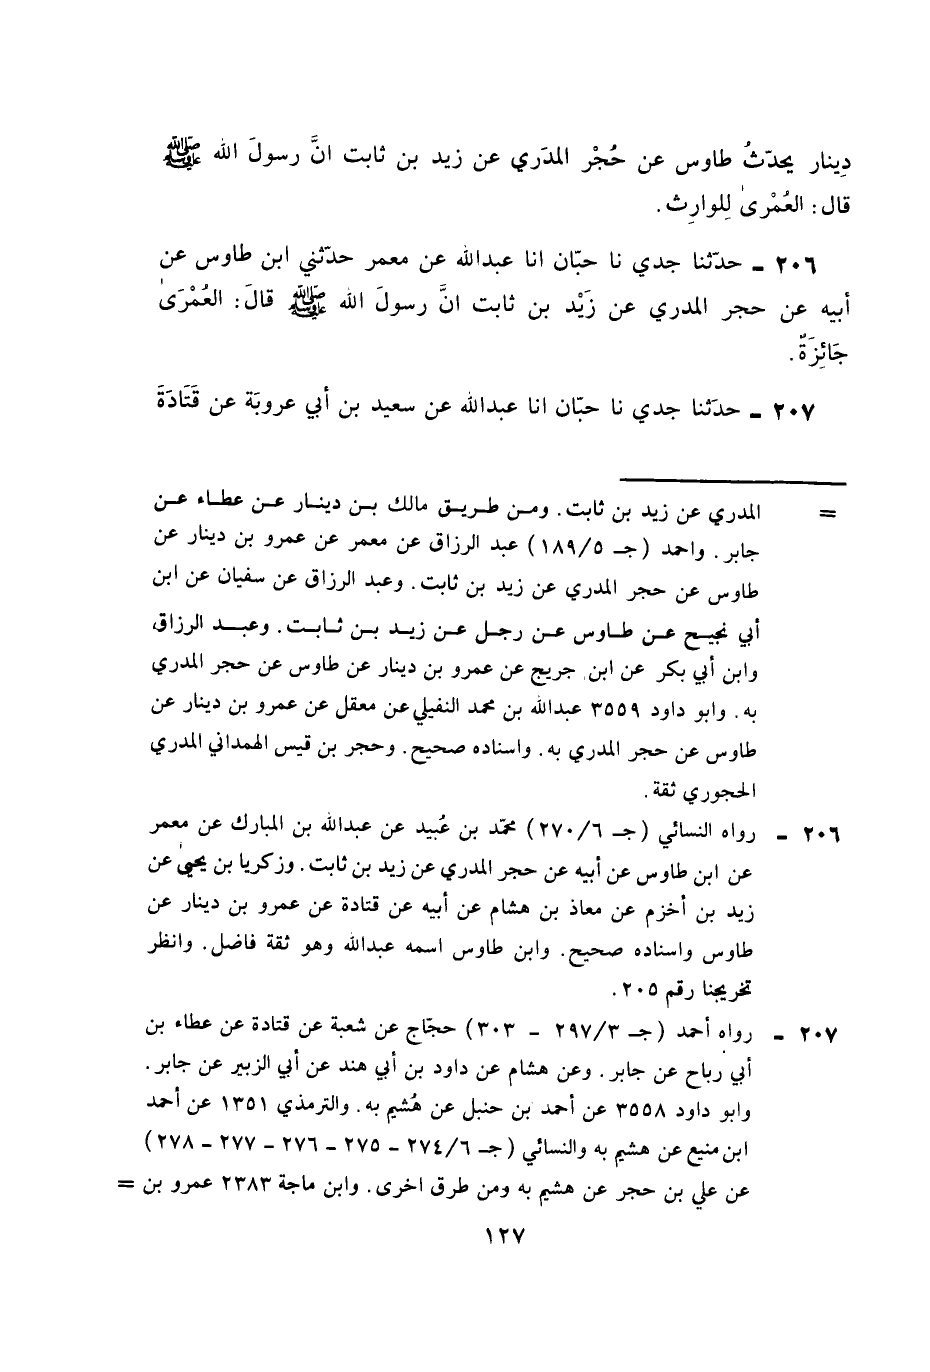 دِينار يحدّثُ طاوس عن حُجْر المدَري عن زيد بن ثابت انَّ رسولَ الله ﷺ
قال: العُمْرىٰ لِلوارِث.
٢٠٦ ـ حدّثنا جدي نا حبّان انا عبدالله عن معمر حدّثني ابن طاوس عن
أبيه عن حجر المدري عن زَيْد بن ثابت انَّ رسولَ الله ﷺ قالَ: العُمْرَىٰ
جَائِزَةٌ.
٢٠٧ ـ حدّثنا جدي نا حبّان انا عبدالله عن سعيد بن أبي عروبَة عن قَتَادَةَ
= المدري عن زيد بن ثابت. ومن طريق مالك بن دينار عن عطاء عن
جابر. واحمد (جـ ١٨٩/٥) عبد الرزاق عن معمر عن عمرو بن دينار عن
طاوس عن حجر المدري عن زيد بن ثابت. وعبد الرزاق عن سفيان عن ابن
أبي نجيح عن طاوس عن رجل عن زيد بن ثابت. وعبد الرزاق،
وابن أبي بكر عن ابن جريج عن عمرو بن دينار عن طاوس عن حجر المدري
به. وابو داود ٣٥٥٩ عبدالله بن محمد النفيلي عن معقل عن عمرو بن دينار عن
طاوس عن حجر المدري به. واسناده صحيح. وحجر بن قيس الهمداني المدري
الحجوري ثقة.
٢٠٦ ـ رواه النسائي (جـ ٢٧٠/٦) محمّد بن عُبيد عن عبدالله بن المبارك عن معمر
عن ابن طاوس عن أبيه عن حجر المدري عن زيد بن ثابت. وزكريا بن يحيىٰ عن
زيد بن أخزم عن معاذ بن هشام عن أبيه عن قتادة عن عمرو بن دينار عن
طاوس واسناده صحيح. وابن طاوس اسمه عبدالله وهو ثقة فاضل. وانظر
تخريجنا رقم ٢٠٥.
٢٠٧ ـ رواه أحمد (جـ ٢٩٧/٣ ـ ٣٠٣) حجّاج عن شعبة عن قتادة عن عطاء بن
أبي رباح عن جابر. وعن هشام عن داود بن أبي هند عن أبي الزبير عن جابر.
وابو داود ٣٥٥٨ عن أحمد بن حنبل عن هُشيم به. والترمذي ١٣٥١ عن أحمد
ابن منيع عن هشيم به والنسائي (جـ ٢٧٤/٦ ـ ٢٧٥ ـ ٢٧٦ ـ ٢٧٧ ـ ٢٧٨)
عن علي بن حجر عن هشيم به ومن طرق اخرى. وابن ماجة ٢٣٨٣ عمرو بن =
١٢٧